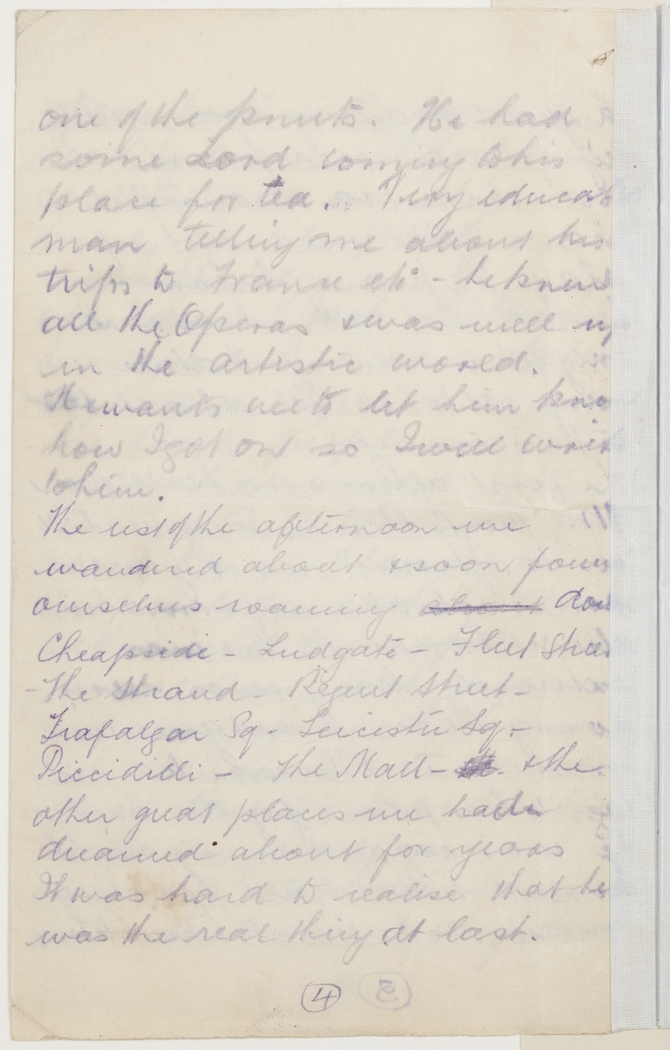 one of the pruets. He had
some Lord coming to his
place for tea. Very educat
man telling me about his
trips to France etc - he knew
all the Operas & was well up
in the artistic world.
He wants us to let him kno
how I got on so I will writ
to him.
The rest of the afternoon we
wandered about & soon foun
ourselves roaming about dow
Cheapside - Ludgate - Fleet Stree
- The Strand - Regent Street -
Trafalgar Sq - Leicester Sq -
Piccidilli - The Mall - & the
other great places we had
dreamed about for years
It was hard to realise that he
was the real thing at last.
4